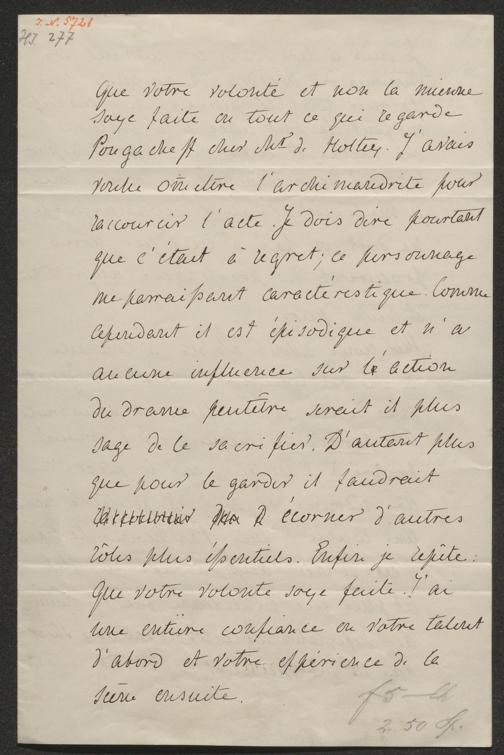 I. N. 5721
HJ. 277
Que votre volonté et non la mienne
soye faite en tout ce qui regarde
Pougacheff cher Mr. de Holtey. J'avais
voulu omettre l'archimandrite pour
raccourcir l'acte. Je dois dire pourtant
que c'était à regret; ce personnage
me parraissant caractérestique. Comme
cependant il est épisodique et n'a
aucune influence sur l'action
du drame peutêtre serait il plus
sage de le sacrifier. D'autant plus
que pour le garder il faudrait
écorner d'autres
rôles plus éssentiels. Enfin je repète:
Que votre volonte soye faite. J'ai
une entière confiance en votre talent
d'abord et votre éxpérience de la
scène ensuite.
2.50